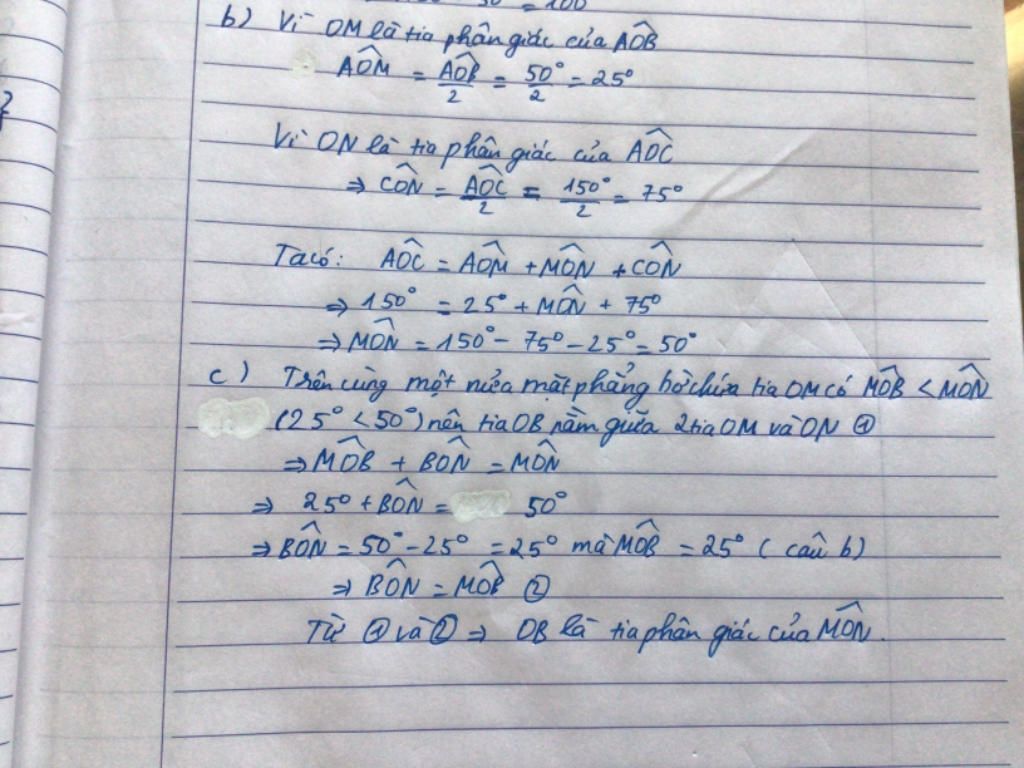 = 100
b) Vì OM là tia phân giác của AÔB
AÔM = AÔB/2 = 50°/2 = 25°
Vì ON là tia phân giác của AÔC
⇒ CÔN = AÔC/2 = 150°/2 = 75°
Ta có: AÔC = AÔM + MÔN + CÔN
⇒ 150° = 25° + MÔN + 75°
⇒ MÔN = 150° - 75° - 25° = 50°
c) Trên cùng một nửa mặt phẳng bờ chứa tia OM có MÔB < MÔN
(25° < 50°) nên tia OB nằm giữa 2 tia OM và ON ①
⇒ MÔB + BÔN = MÔN
⇒ 25° + BÔN = 50°
⇒ BÔN = 50° - 25° = 25° mà MÔB = 25° (câu b)
⇒ BÔN = MÔB ②
Từ ① và ② ⇒ OB là tia phân giác của MÔN.